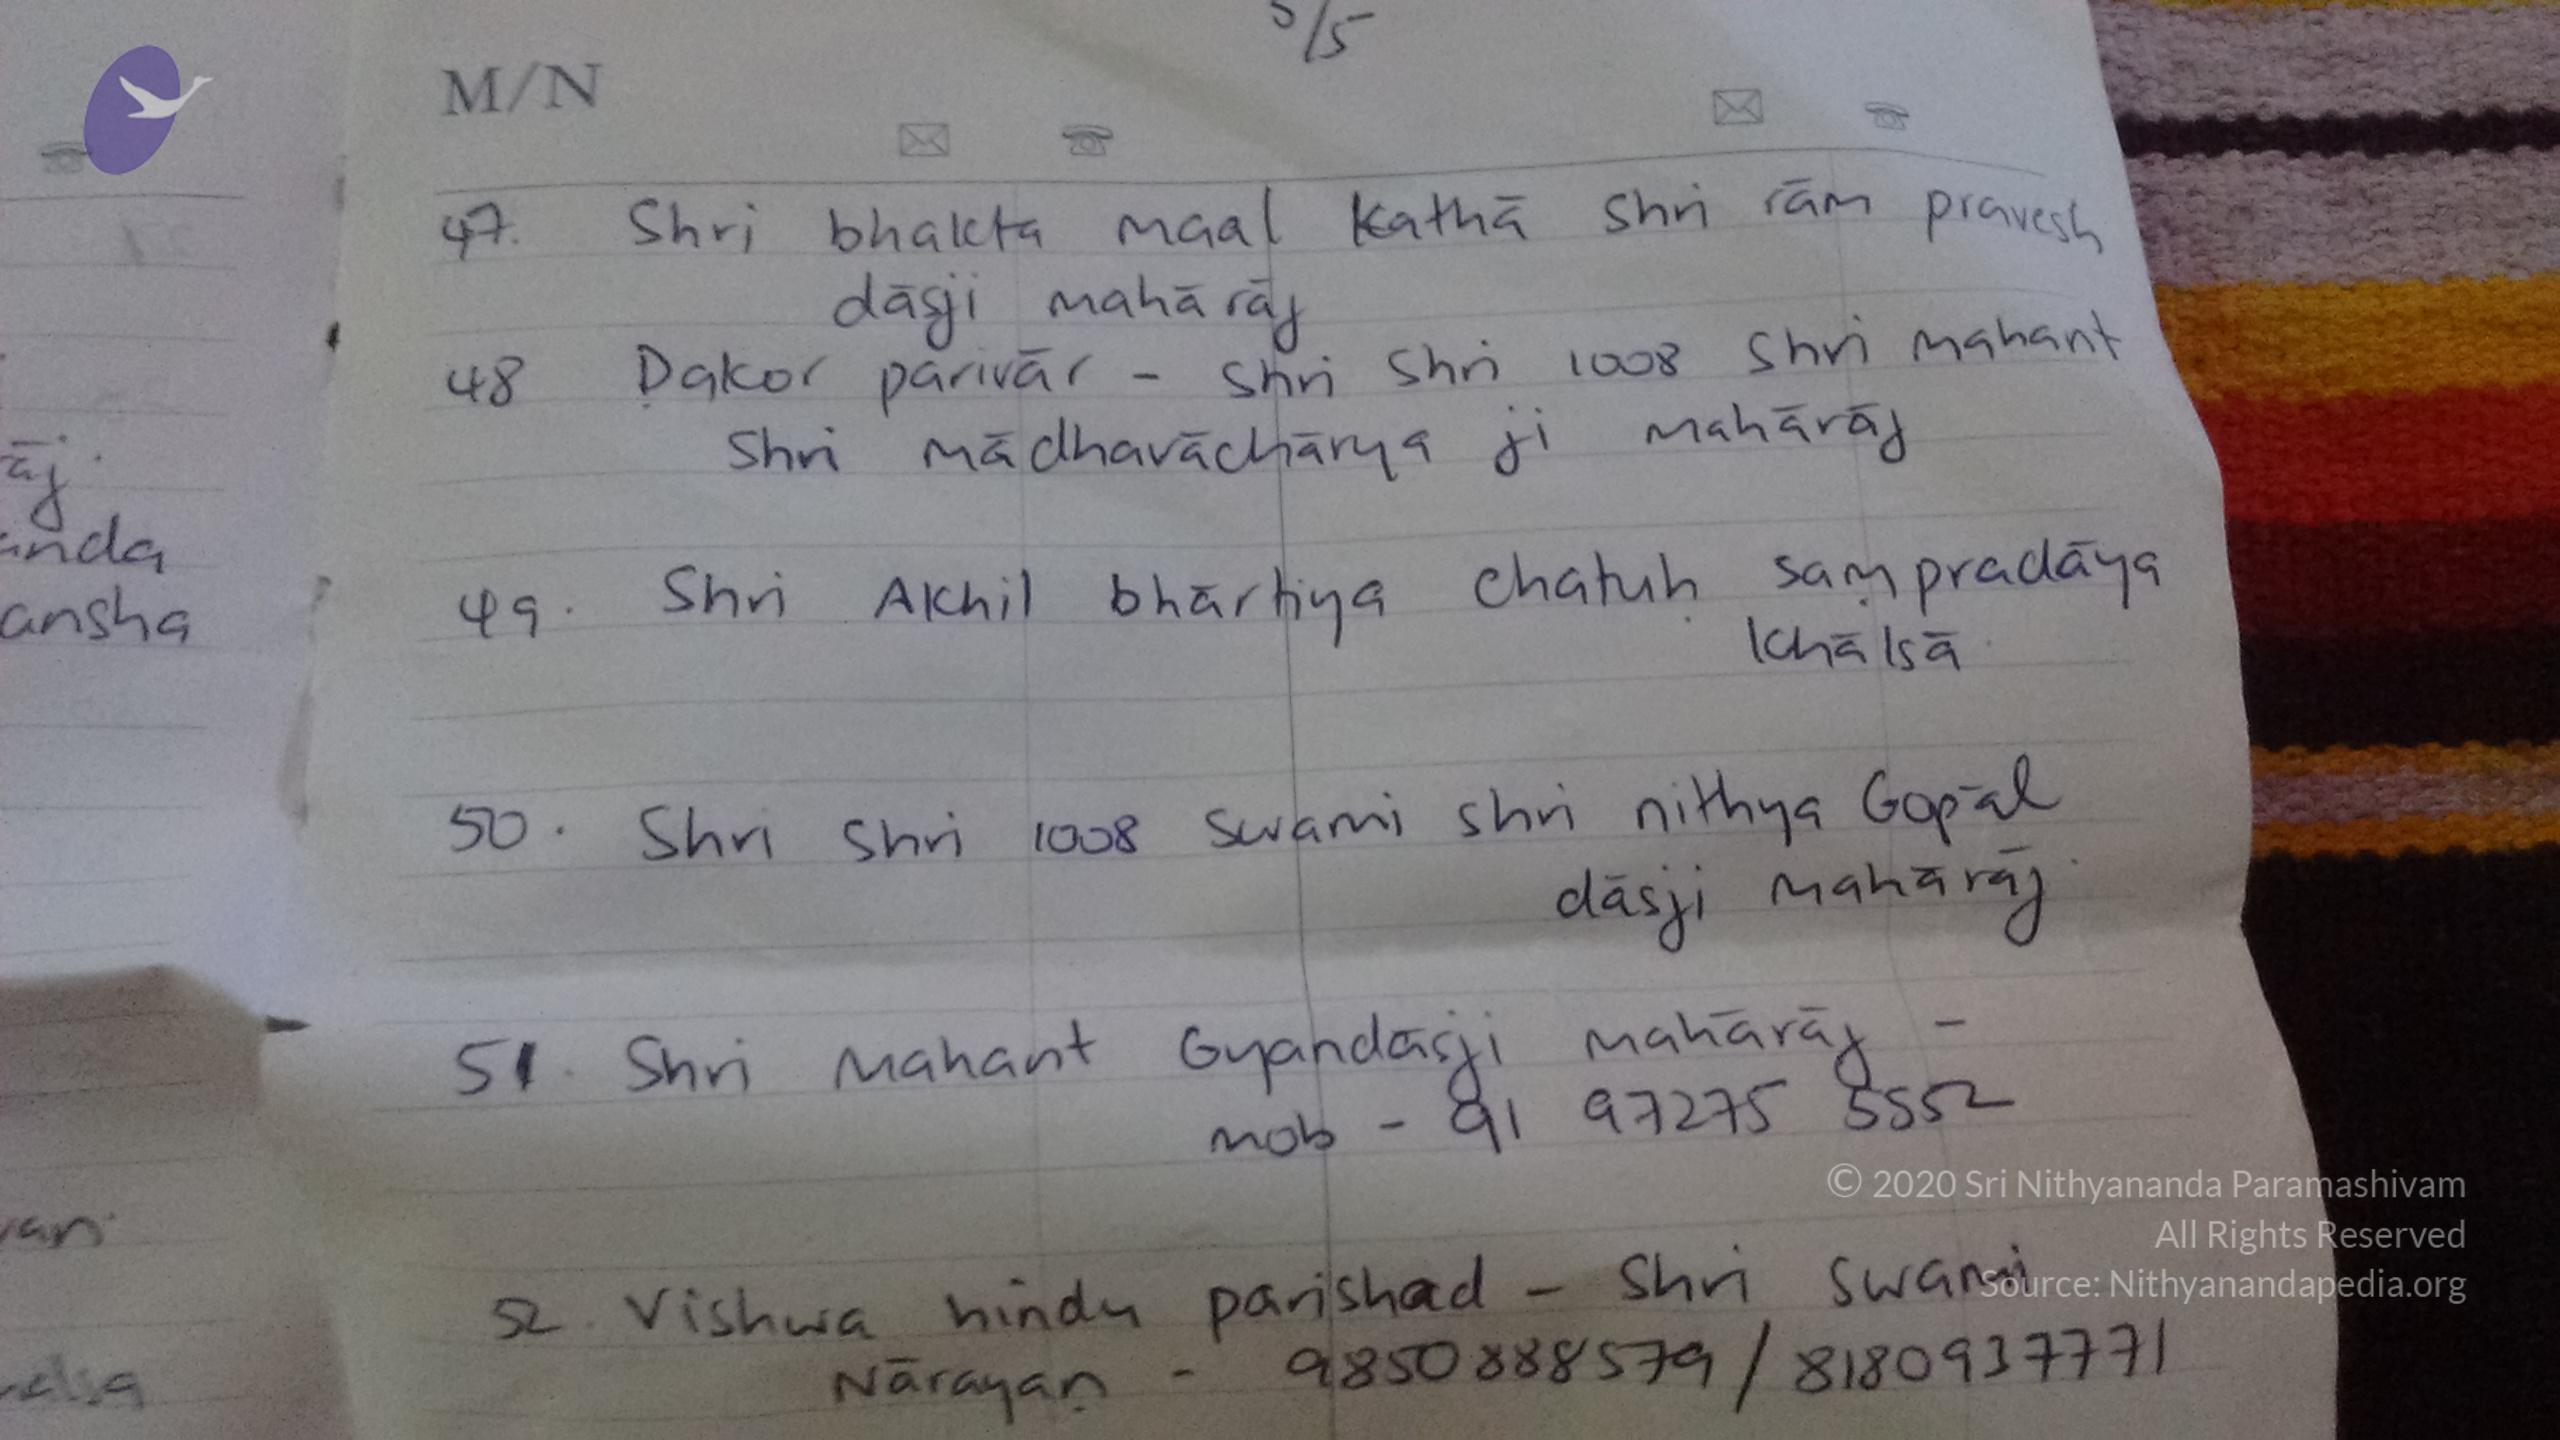 5/5
M/N
47. Shri bhakta maal Kathā Shri rām pravesh
dāsji mahārāj
48 Ḍakor parivār - Shri Shri 1008 Shri mahant
Shri mādhavāchārya ji mahārāj
49. Shri Akhil bhārtiya chatuḥ saṃpradāya
Khālsā
50. Shri Shri 1008 Swami Shri nithya Gopāl
dāsji mahārāj.
51. Shri Mahant Gyandāsji mahārāj -
mob - 91 97275 5552
52. Vishwa hindu parishad - Shri Swami
Nārayaṇ - 9850888579 / 8180937771
āj.
anda
ansha
© 2020 Sri Nithyananda Paramashivam
All Rights Reserved
Source: Nithyanandapedia.org